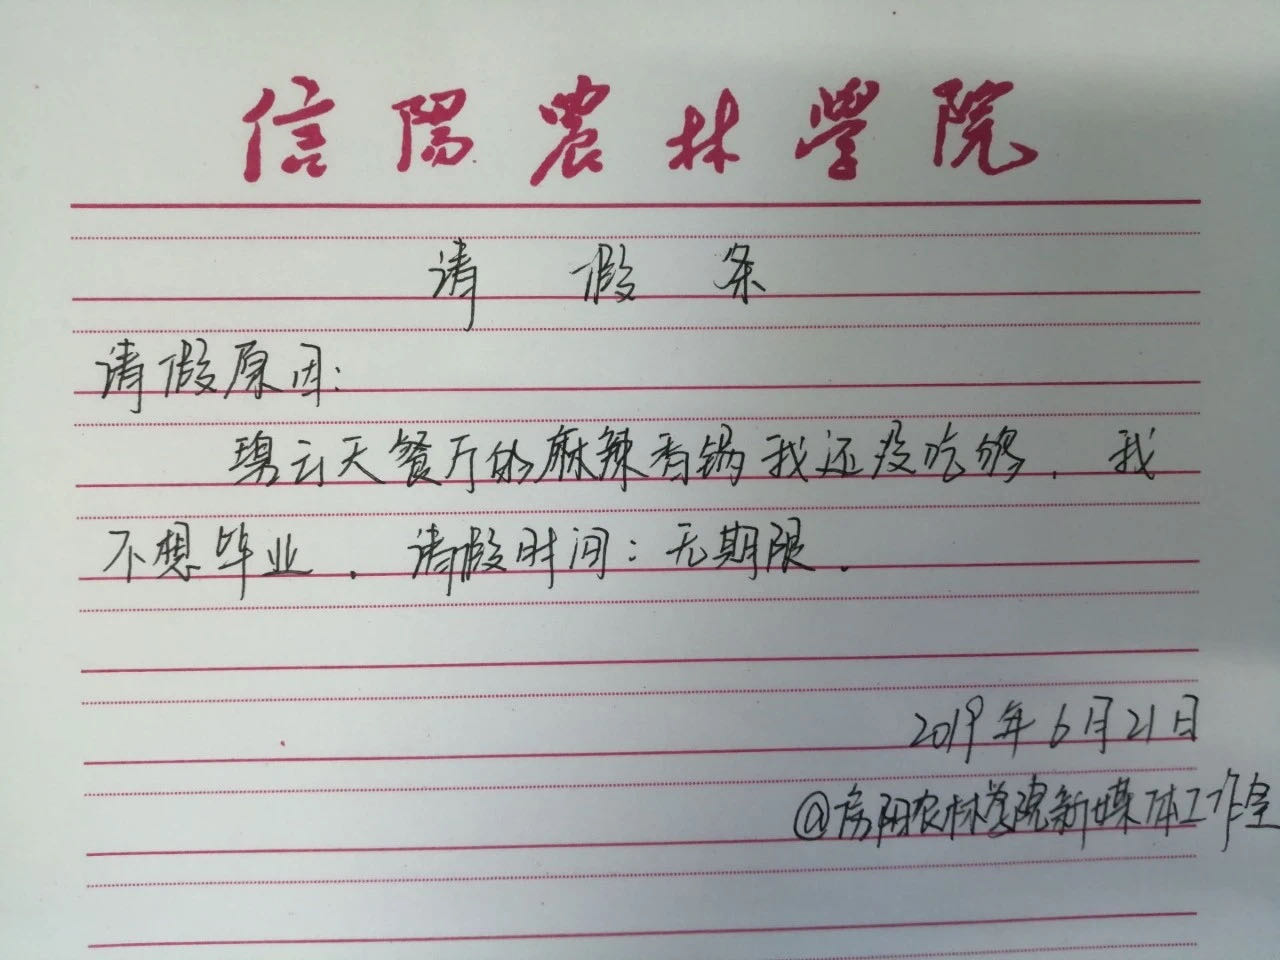 信陽農林學院
请假条
请假原因:
碧云天餐厅的麻辣香锅我还没吃够.我
不想毕业.请假时间:无期限.
2019年6月21日
@信阳农林学院新媒体工作室